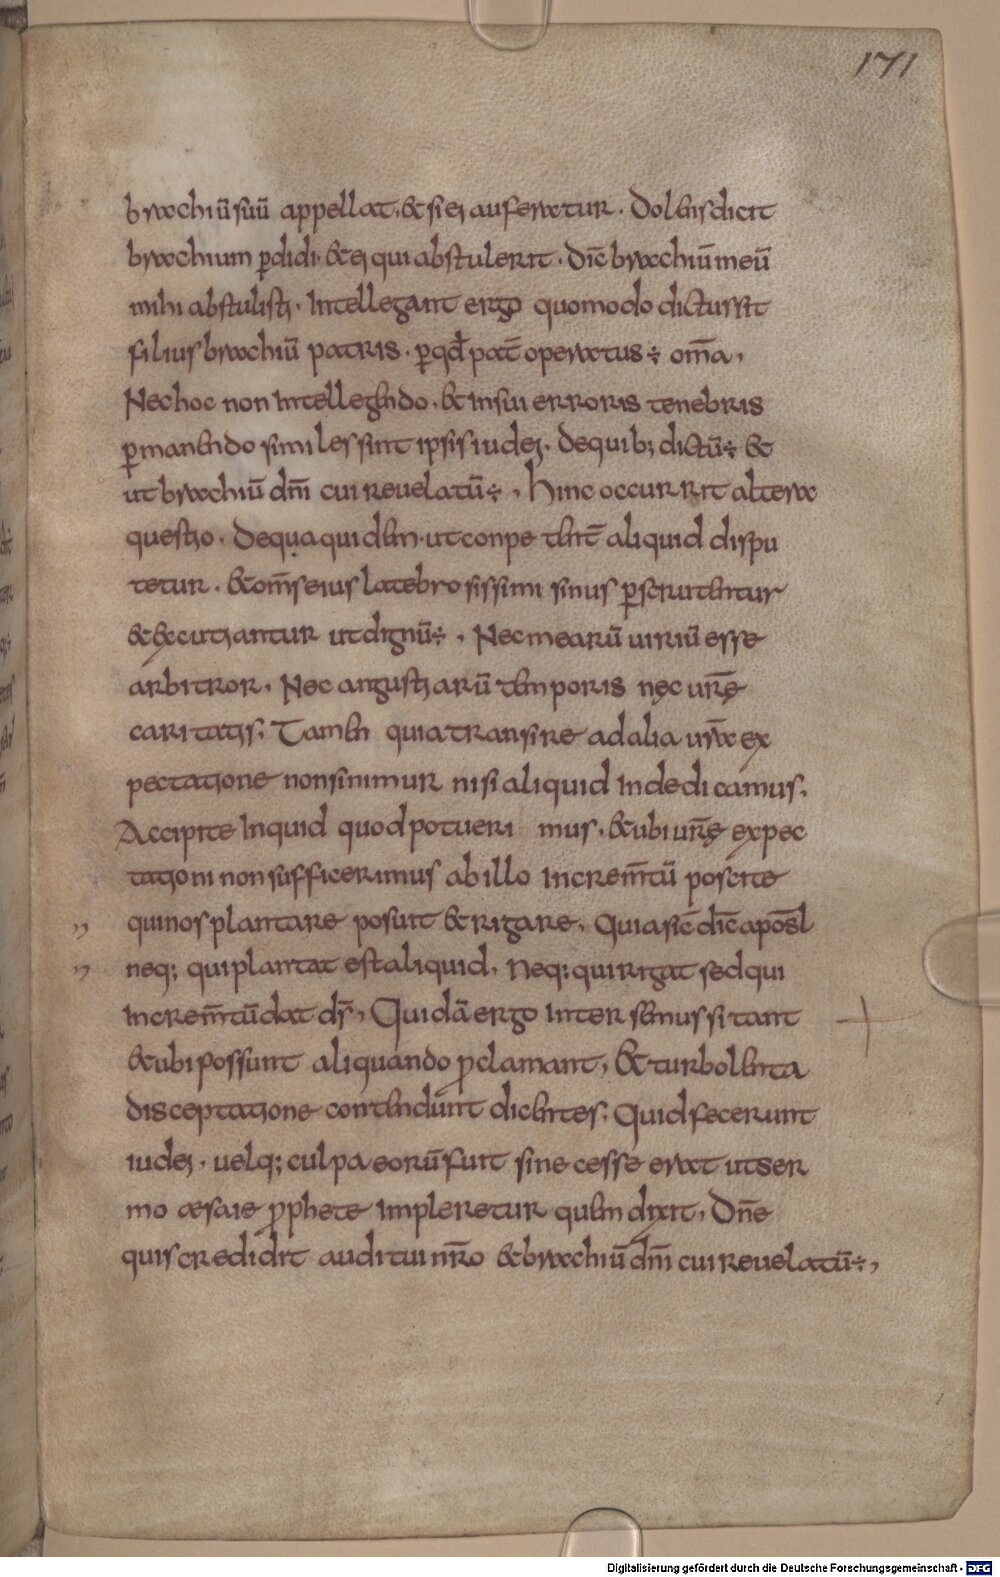 171
brachiū suū appellat, & si ei auferatur. Dolens dicit
brachium ꝑdidi. & ei qui abstulerit. dic̄ brachiū meū
mihi abstulisti. Intellegant ergo quomodo dictus sit
filius brachiū patris. ꝑ qd̄ pat̄ operatus ÷ om̄a,
Nec hoc non intellegendo. & in sui erroris tenebris
ꝑmanendo similes sint ipsis iudei. De quib; dictū ÷ &
ut brachiū dn̄i cui reuelatū ÷, Hinc occurrit altera
questio. De qua quidem. ut conpetent̄ aliquid dispu
tetur. & om̄s eius latebrosissimi sinus ꝑscrutentur
& excutiantur ut dignū ÷, Nec mearū uiriū esse
arbitror. Nec angustiarū temporis nęc urę̄
caritatis; Tamen quia transire ad alia ur̄a ex
pectatione non sinimur nisi aliquid inde dicamus.
Accipite inquid quod potueri mus. & ubi urę̄ expec
tationi non sufficerimus ab illo increm̄tū poscite
qui nos plantare posuit & rigare. Quia sic̄ dic̄ apōsl
neq; qui plantat est aliquid, Neq; qui rigat sed qui
increm̄tū dat ds̄, Quidā ergo inter se musitant
& ubi possunt aliquando ꝓclamant, & turbolenta
disceptatione contendunt dicentes; Quid fecerunt
iudei. uel q; culpa eorū fuit si necesse erat ut ser
mo esaie ꝓphete impleretur quem dixit, Dn̄e
quis credidit auditui nr̄o & brachiū dn̄i cui reuelatū ÷,
Digitalisierung gefördert durch die Deutsche Forschungsgemeinschaft - DFG